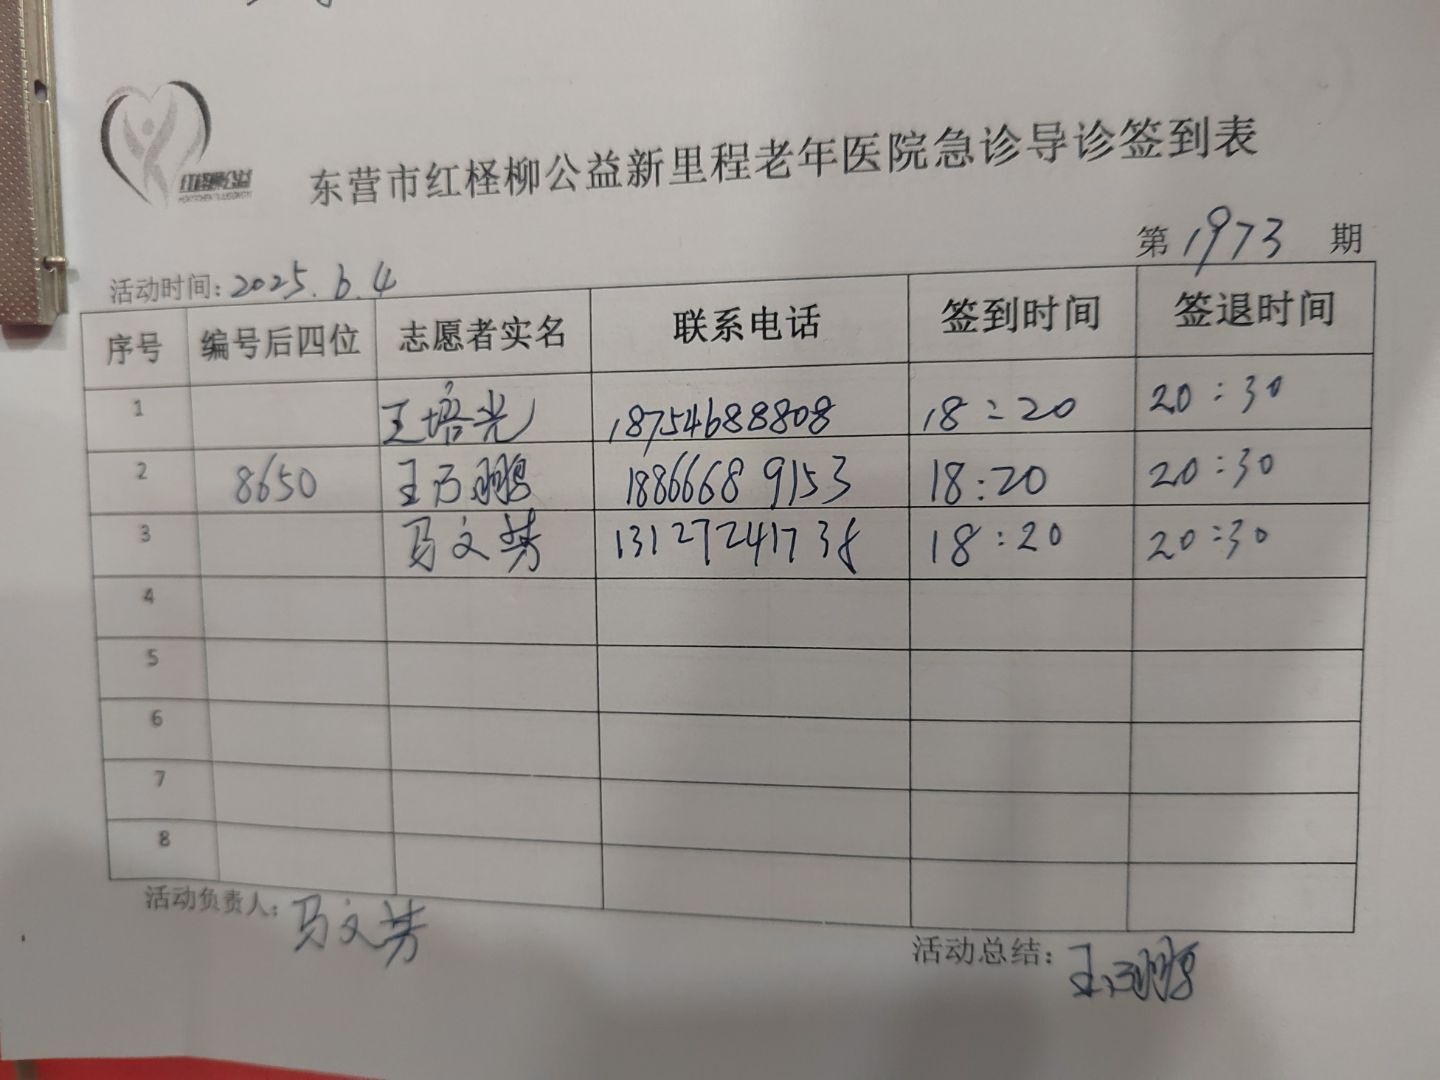 红柽柳公益
东营市红柽柳公益新里程老年医院急诊导诊签到表
第1973期
活动时间:2025.6.4
序号 编号后四位 志愿者实名 联系电话 签到时间 签退时间
1 王培光 18754688808 18:20 20:30
2 8650 王万鹏 18866689153 18:20 20:30
3 马文芳 13127241738 18:20 20:30
4
5
6
7
8
活动负责人:马文芳
活动总结:王万鹏